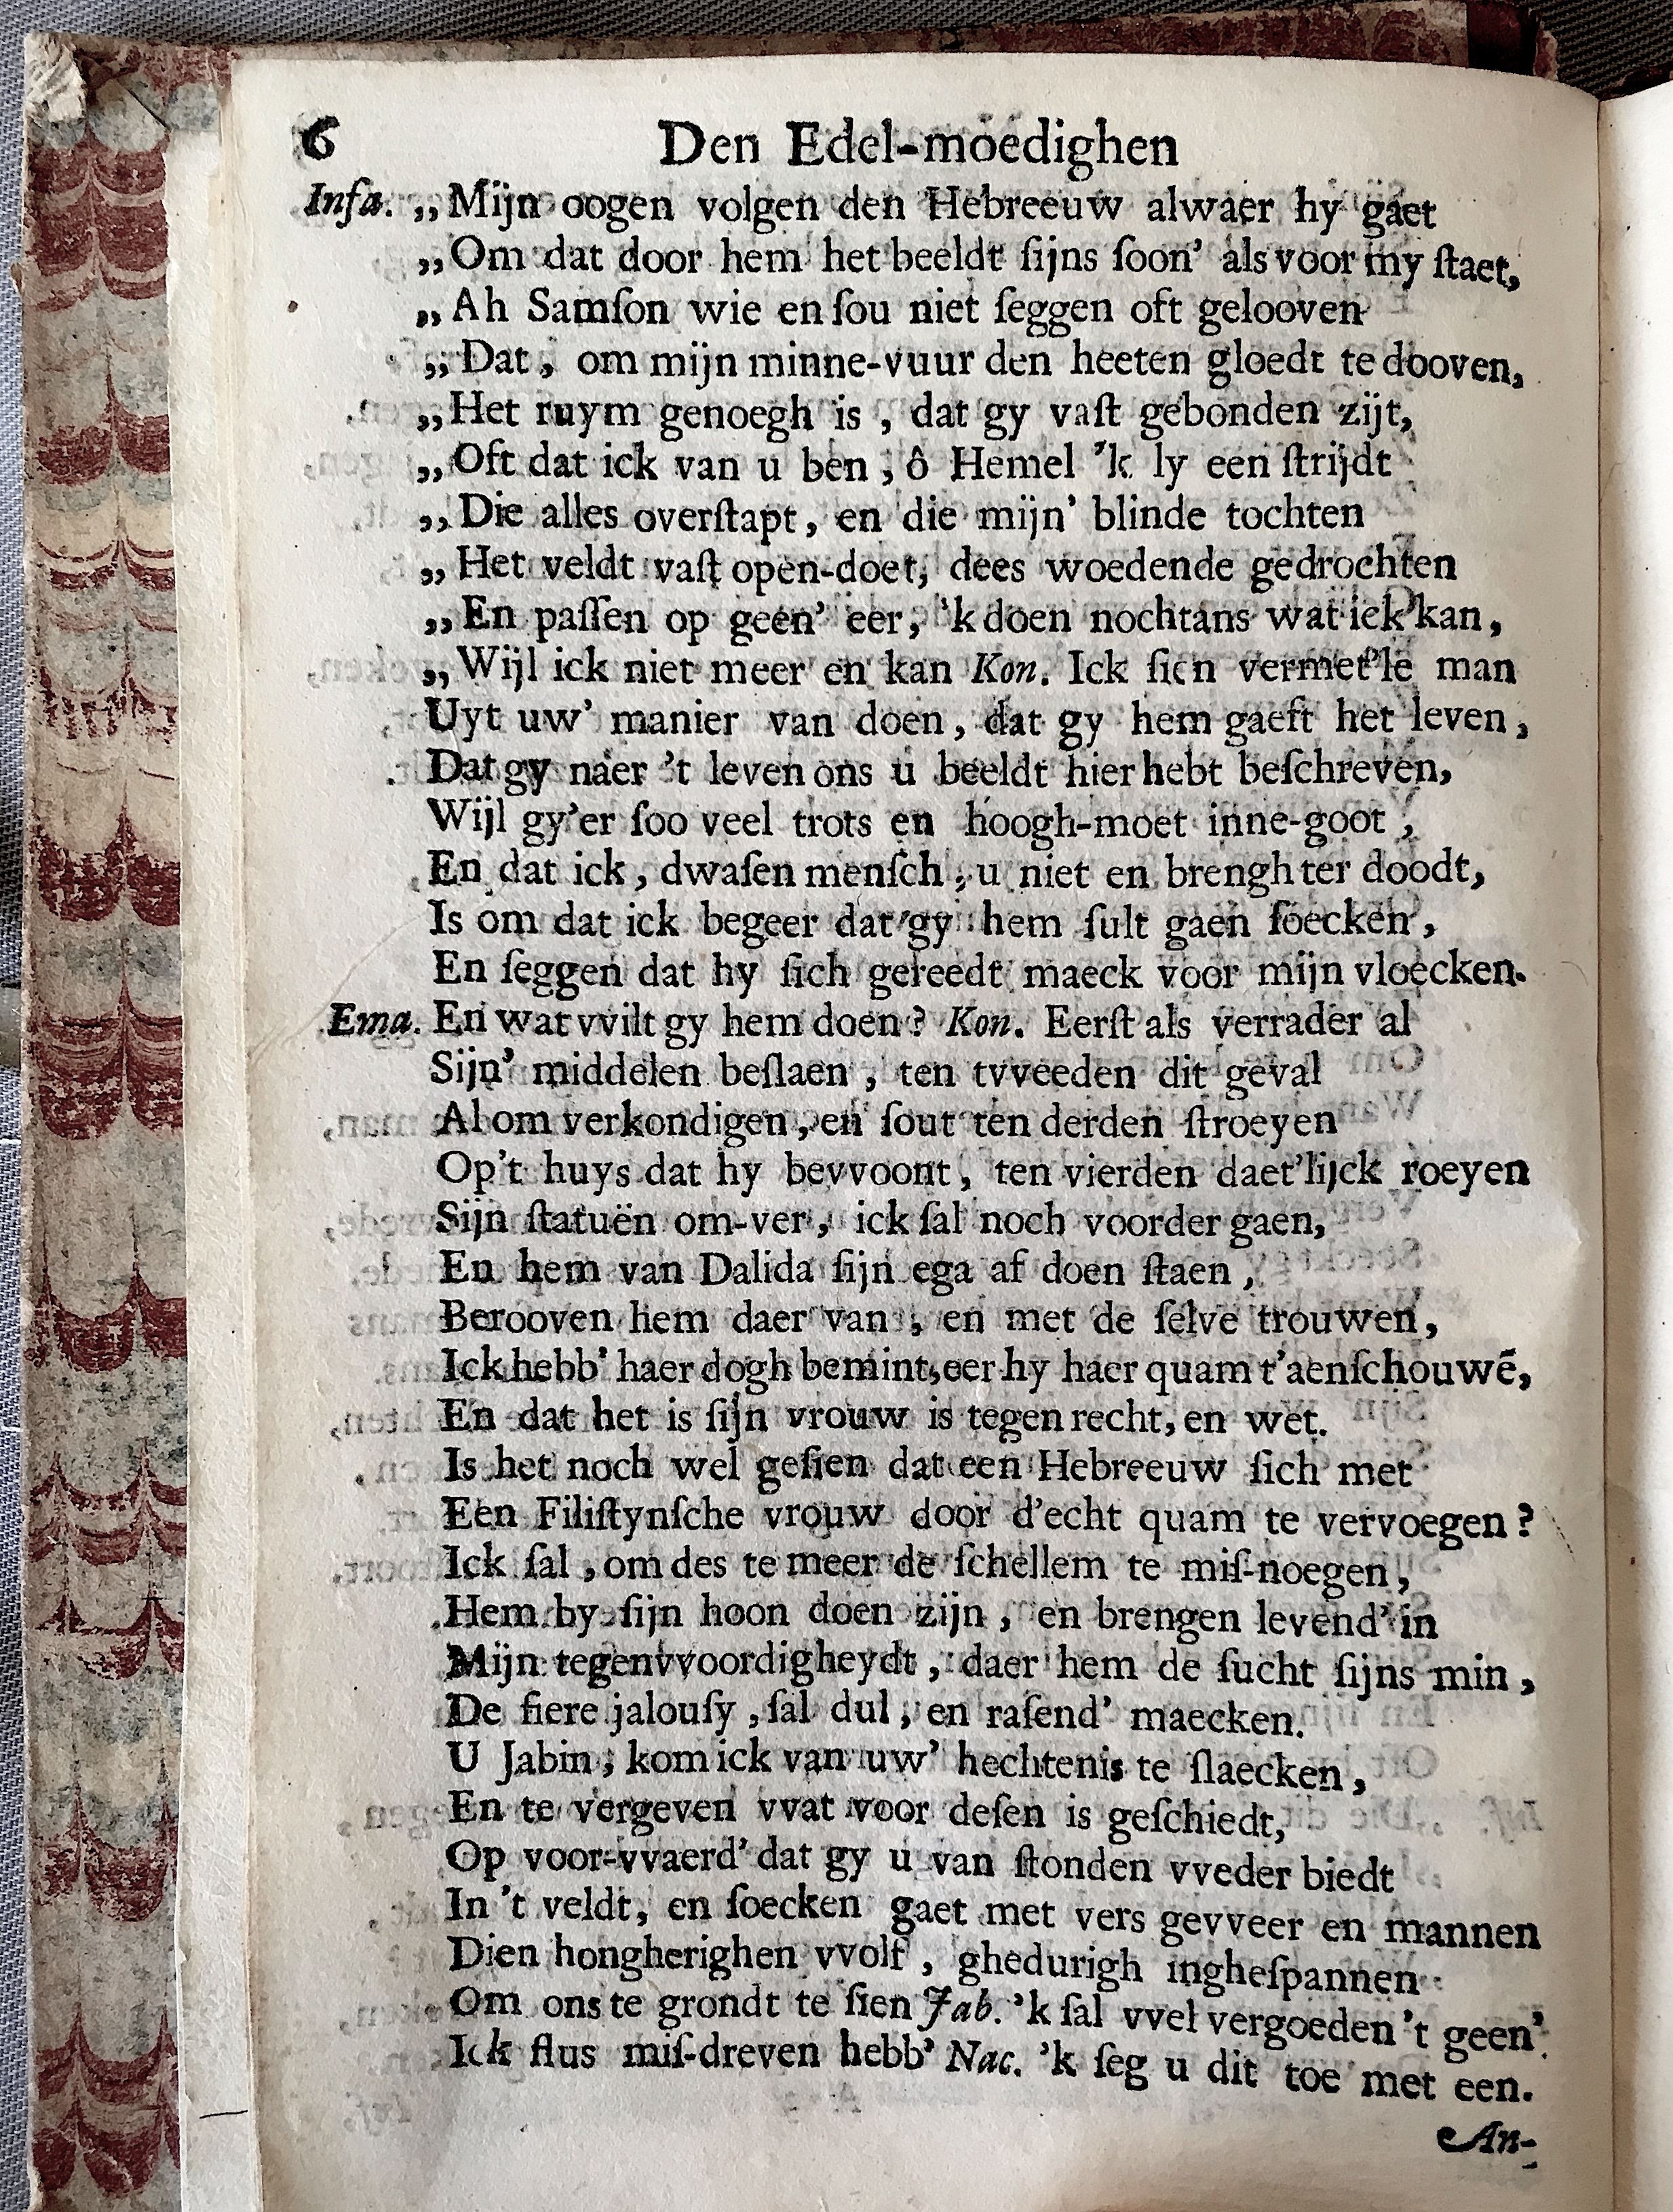 6 Den Edel-moedighen
Infa. „Mijn oogen volgen den Hebreeuw alwaer hy gaet
„Om dat door hem het beeldt ſijns ſoon' als voor my ſtaet,
„Ah Samſon wie en ſou niet ſeggen oft gelooven
„Dat, om mijn minne-vuur den heeten gloedt te dooven,
„Het ruym genoegh is, dat gy vaſt gebonden zijt,
„Oft dat ick van u ben, ô Hemel 'k ly een ſtrijdt
„Die alles overſtapt, en die mijn' blinde tochten
„Het veldt vaſt open-doet, dees woedende gedrochten
„En paſſen op geen' eer, 'k doen nochtans wat ick kan,
„Wijl ick niet meer en kan Kon. Ick ſien vermet'le man
Uyt uw' manier van doen, dat gy hem gaeft het leven,
Dat gy naer 't leven ons u beeldt hier hebt beſchreven,
Wijl gy'er ſoo veel trots en hoogh-moet inne-goot,
En dat ick, dwaſen menſch, u niet en brengh ter doodt,
Is om dat ick begeer dat gy hem ſult gaen ſoecken,
En ſeggen dat hy ſich gereedt maeck voor mijn vloecken.
Ema. En wat vvilt gy hem doen? Kon. Eerſt als verrader al
Sijn' middelen beſlaen, ten tvveeden dit geval
Alom verkondigen, en ſout ten derden ſtroeyen
Op't huys dat hy bevvoont, ten vierden daet'lijck roeyen
Sijn ſtatuën om-ver, ick ſal noch voorder gaen,
En hem van Dalida ſijn ega af doen ſtaen,
Berooven hem daer van, en met de ſelve trouwen,
Ick hebb' haer dogh bemint, eer hy haer quam t'aenſchouwē,
En dat het is ſijn vrouw is tegen recht, en wet.
Is het noch wel geſien dat een Hebreeuw ſich met
Een Filiſtynſche vrouw door d'echt quam te vervoegen?
Ick ſal, om des te meer de ſchellem te miſ-noegen,
Hem by ſijn hoon doen zijn, en brengen levend' in
Mijn tegenvvoordigheydt, daer hem de ſucht ſijns min,
De fiere jalouſy, ſal dul, en raſend' maecken.
U Jabin, kom ick van uw' hechtenis te ſlaecken,
En te vergeven vvat voor deſen is geſchiedt,
Op voor-vvaerd' dat gy u van ſtonden vveder biedt
In 't veldt, en ſoecken gaet met vers gevveer en mannen
Dien hongherighen vvolf, ghedurigh ingheſpannen
Om ons te grondt te ſien Jab. 'k ſal vvel vergoeden 't geen'
Ick flus miſ-dreven hebb' Nac. 'k ſeg u dit toe met een.
An-